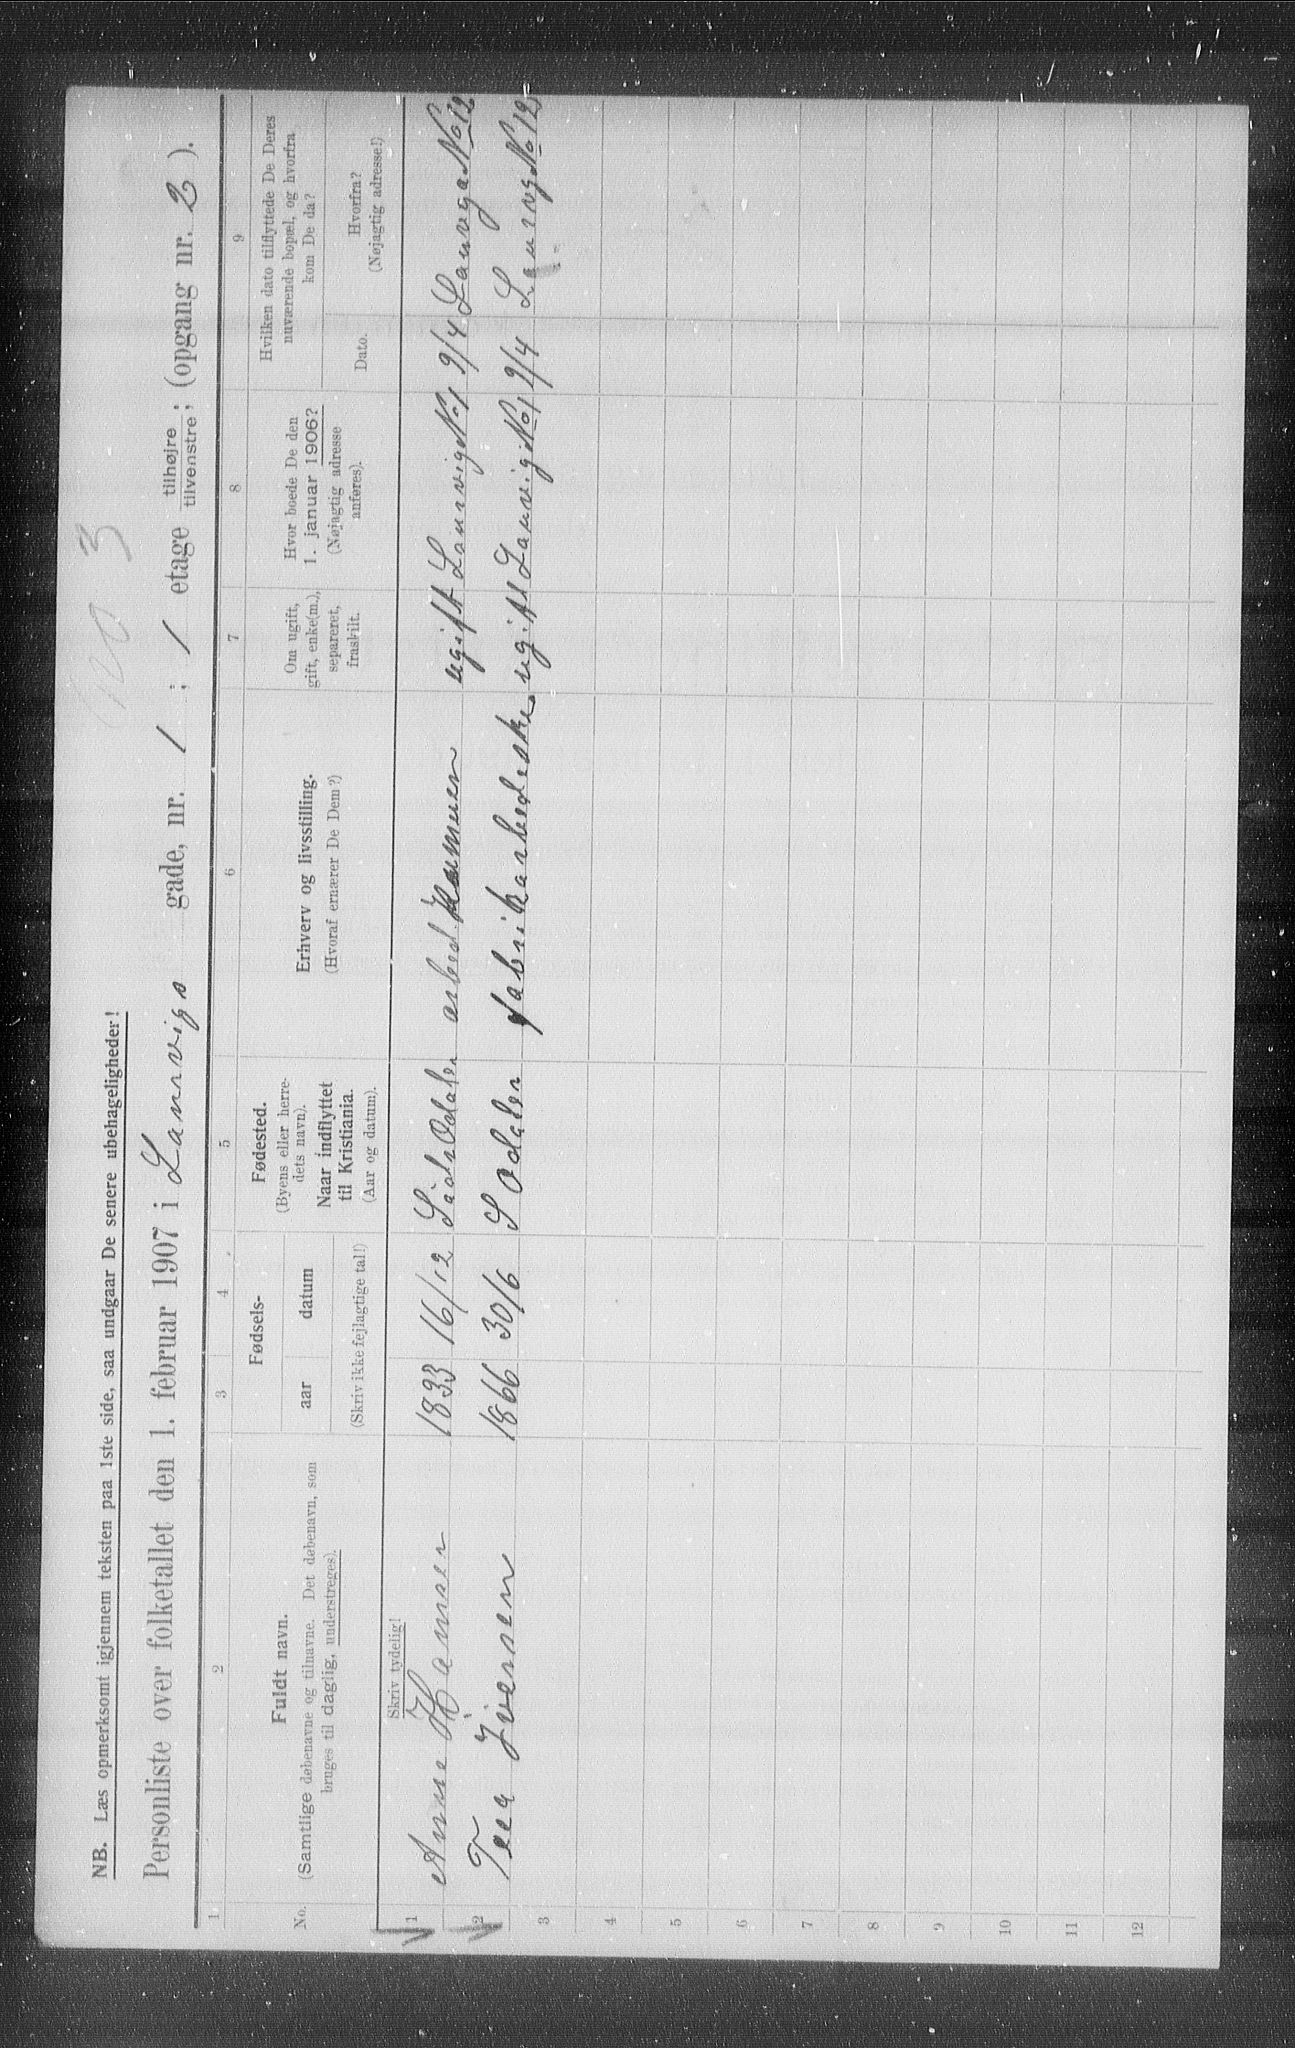 NB. Læs opmerksomt igjennem teksten paa 1ste side, saa undgaar De senere ubehageligheder!
3
Personliste over folketallet den 1. februar 1907 i Laurvigs gade, nr. 1 ; 1 etage tilhøjre tilvenstre; (opgang nr. 2 ).
1 2 3 4 5 6 7 8 9
No.
Fuldt navn.
(Samtlige døbenavne og tilnavne. Det døbenavn, som
bruges til daglig, understreges).
Fødsels-
aar datum
(Skriv ikke fejlagtige tal!)
Fødested.
(Byens eller herre-
dets navn).
Naar indflyttet
til Kristiania.
(Aar og datum).
Erhverv og livsstilling.
(Hvoraf ernærer De Dem?)
Om ugift,
gift, enke(m.),
separeret,
fraskilt.
Hvor boede De den
1. januar 1906?
(Nøjagtig adresse
anføres).
Hvilken dato tilflyttede De Deres
nuværende bopæl, og hvorfra
kom De da?
Dato.
Hvorfra?
(Nøjagtig adresse!)
Skriv tydelig!
1 Anne Hansen 1833 16/12 Södr Odalen arbed. ugift Laurvigs No 1 9/4 Laurvga No 12
2 Tea Iversen 1866 30/6 S Odalen fabrikarbeideske ugift Laurvigs No 1 9/4 Laurvg No 12
3
4
5
6
7
8
9
10
11
12